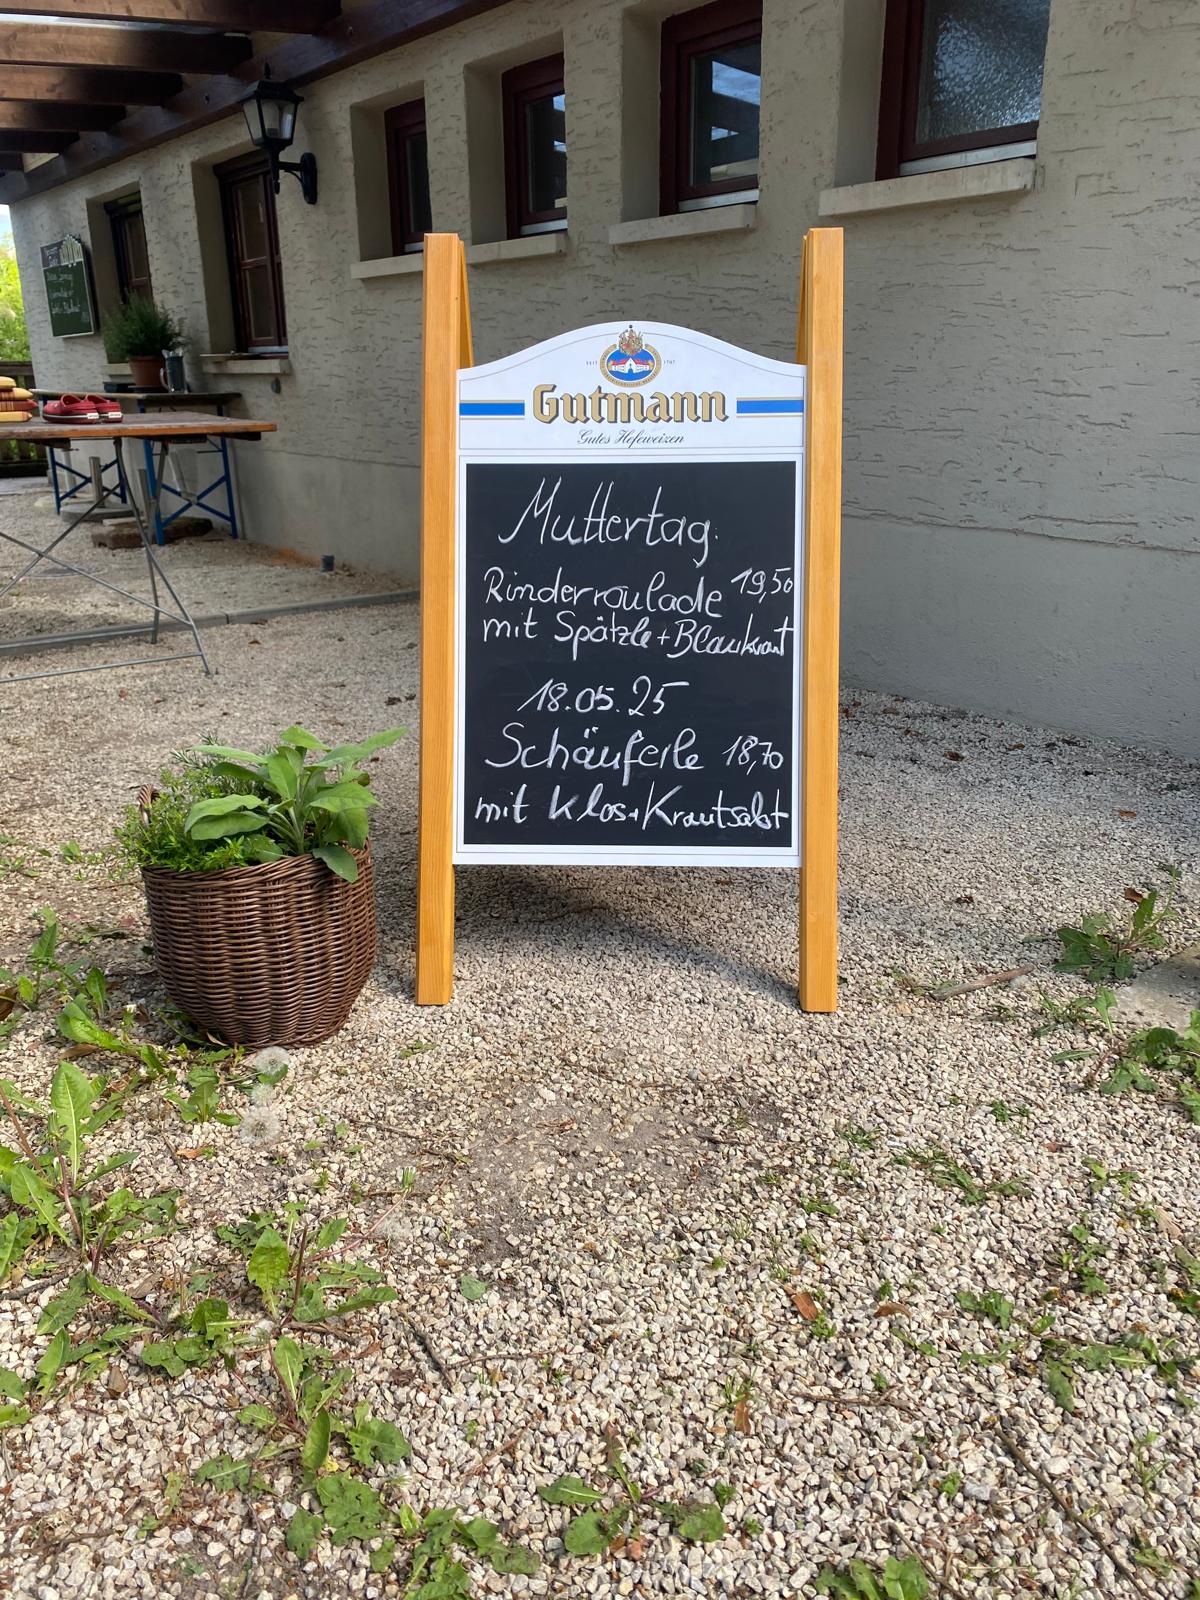 SEIT 1707
Gutmann
Gutes Hefeweizen
Muttertag:
Rinderroulade 19,50
mit Spätzle + Blaukraut
18.05.25
Schäuferle 18,70
mit Klos + Krautsalat